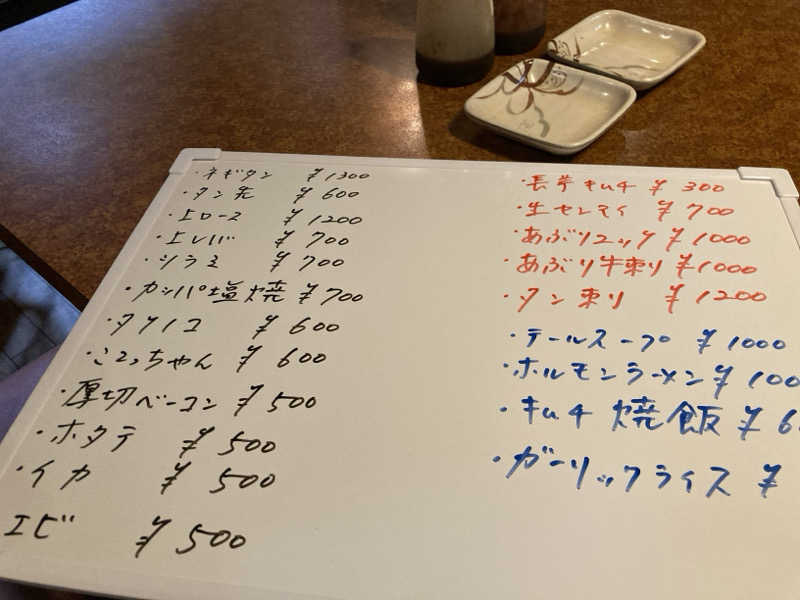 ・ネギタン ¥1300
・タン先 ¥600
・上ロース ¥1200
・上レバー ¥700
・ツラミ ¥700
・カッパ塩焼 ¥700
・タケノコ ¥600
・こてっちゃん ¥600
・厚切ベーコン ¥500
・ホタテ ¥500
・イカ ¥500
エビ ¥500
・長芋キムチ ¥300
・生センマイ ¥700
・あぶりユッケ ¥1000
・あぶり牛刺り ¥1000
・タン刺り ¥1200
・テールスープ ¥1000
・ホルモンラーメン ¥100
・キムチ焼飯 ¥6
・ガーリックライス ¥